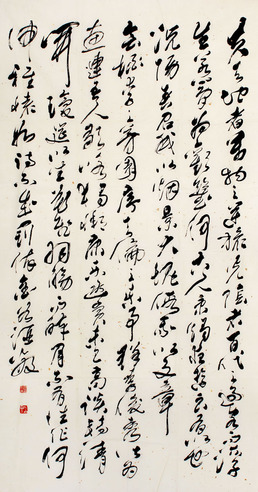 夫天地者萬物之逆旅光陰者百代之過客而浮
生若夢為歡幾何古人秉燭夜遊良有以也
況陽春召我以煙景大塊假我以文章
會桃李之芳園序天倫之樂事群季俊秀皆為
惠連吾人詠歌獨慚康樂幽賞未已高談轉清
開瓊筵以坐花飛羽觴而醉月不有佳作何
伸雅懷如詩不成罰依金谷酒數